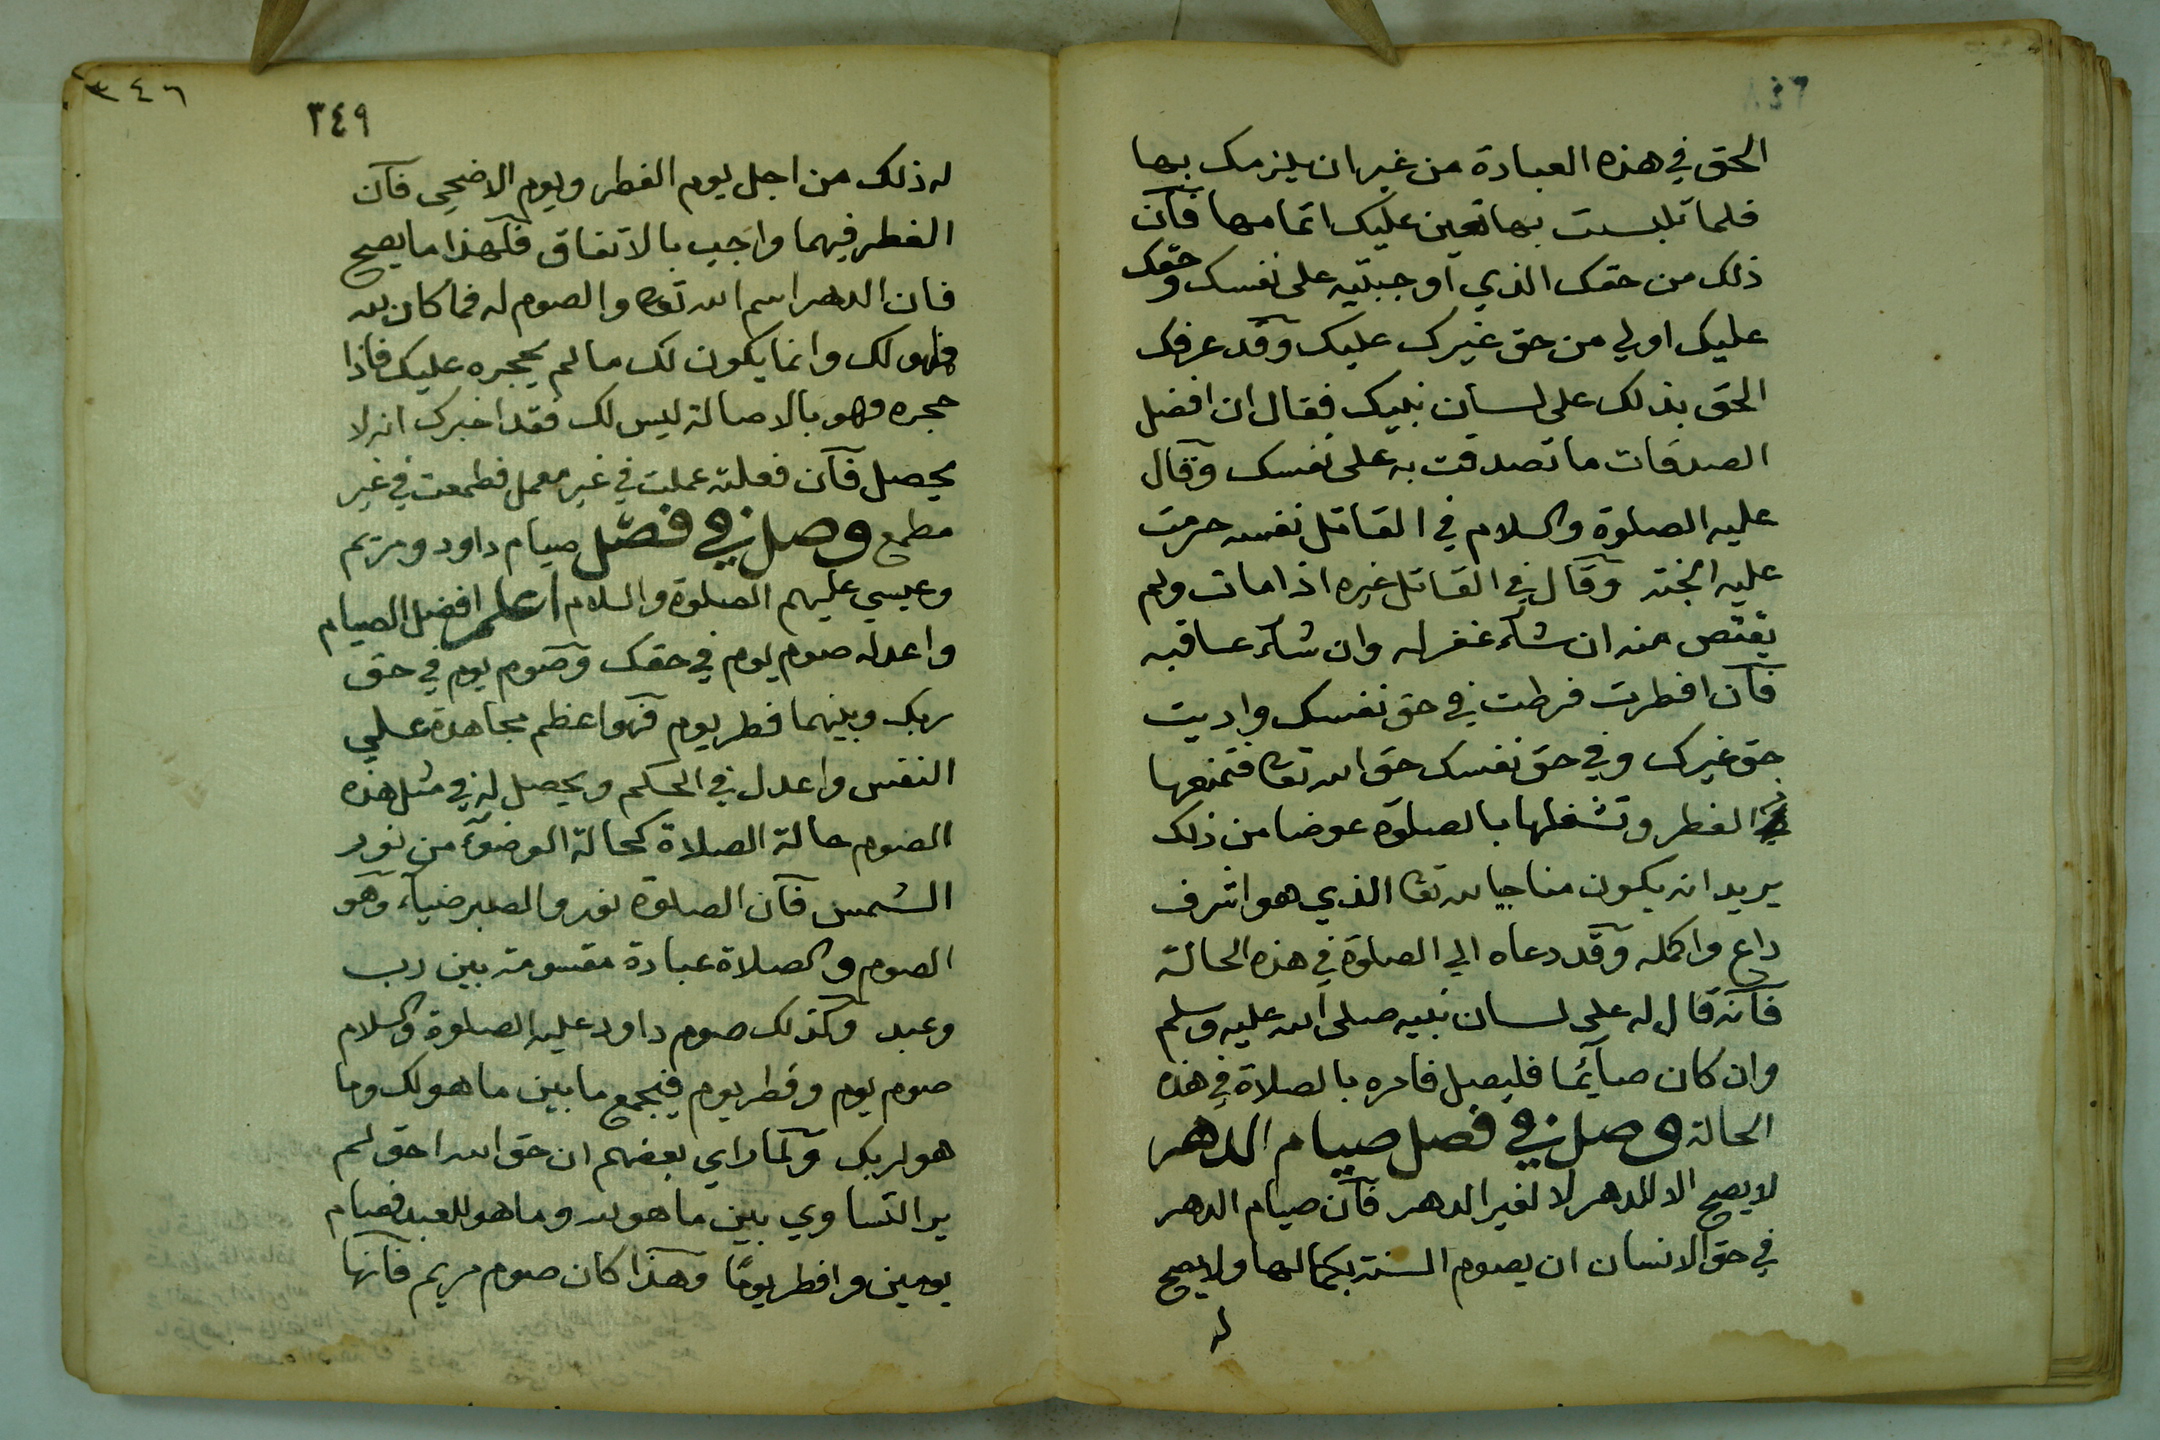 الحق في هذه العبادة من غير ان يلزمك بها
فلما تلبست بها تعين عليك اتمامها فآن
ذلك من حقك الذي اوجبته على نفسك وحقك
عليك اولي من حق غيرك عليك وقد عرفك
الحق بذلك على لسان نبيك فقال ان افضل
الصدقات ما تصدقت به على نفسك وقال
عليه الصلوة والسلام في القاتل نفسه حرمت
عليه الجنة وقال في القاتل غيره اذا مات ولم
يقتص منه ان شآء غفر له وان شآء عاقبه
فآن افطرت فرطت في حق نفسك واديت
حق غيرك وفي حق نفسك حق الله تعا فتمنعها
الفطر وتشغلها بالصلوة عوضا من ذلك
يريد انه يكون مناجيا لله تعا الذي هو اشرف
داع واكمله وقد دعاه الي الصلوة في هذه الحالة
فآنه قال له على لسان نبيه صلى الله عليه وسلم
وان كان صآئما فليصل فامره بالصلاة في هذه
الحالة وصل في فصل صيام الدهر
لا يصح الا للدهر لا لغير الدهر فآن صيام الدهر
في حق الانسان ان يصوم السنة بكمالها ولا يصح
له
٣٤٦
٣٤٩
له ذلك من اجل يوم الفطر ويوم الاضحي فآن
الفطر فيهما واجب بالاتفاق فلهذا ما يصح
فان الدهر اسم الله تعا والصوم له فما كان لله
فهو لك وانما يكون لك ما لم يحجره عليك فاذا
حجره فهو بالاصالة ليس لك فقد اخبرك انه لا
يحصل فآن فعلته عملت في غير معمل فطمعت في غير
مطمع وصل في فصل صيام داود ومريم
وعيسي عليهم الصلوة والسلام اعلم افضل الصيام
واعدله صوم يوم في حقك وصوم يوم في حق
ربك وبينهما فطر يوم فهو اعظم مجاهدة علي
النفس واعدل في الحكم ويحصل له في مثل هذه
الصوم حالة الصلاة كحالة الوضوء من نور
الشمس فآن الصلوة نور والصبر ضيآء وهو
الصوم والصلاة عبادة مقسومة بين رب
وعبد وكذلك صوم داود عليه الصلوة والسلام
صوم يوم وفطر يوم فيجمع ما بين ما هو لك وما
هو لربك ولما راي بعضهم ان حق الله احق لم
ير التساوي بين ما هو لله وما هو للعبد فصام
يومين وافطر يوما وهذا كان صوم مريم فآنها